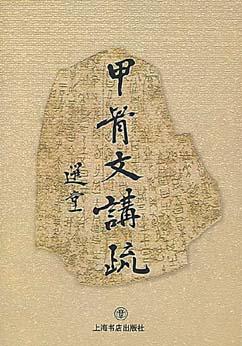 甲骨文講疏
選堂
上海书店出版社